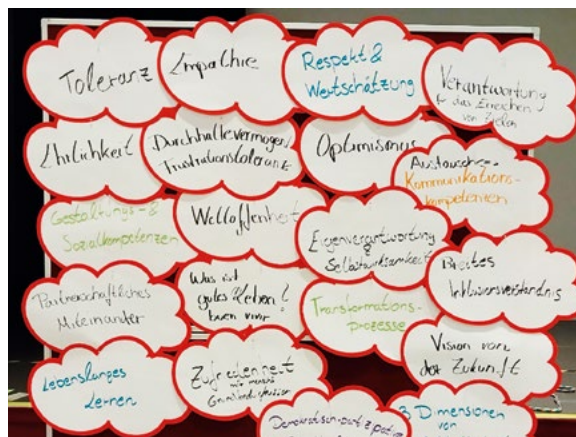 Toleranz
Empathie
Respekt &
Wertschätzung
Verantwortung
f. das Erreichen
von Zielen
Ehrlichkeit
Durchhaltevermögen/
Frustrationstoleranz
Optimismus
Austausch- &
Kommunikations-
kompetenzen
Gestaltungs- &
Sozialkompetenzen
Weltoffenheit
Eigenverantwortung
& Selbstwirksamkeit
Breites
Inklusionsverständnis
Partnerschaftliches
Miteinander
Was ist
gutes Leben?
buen vivir
Transformations-
prozesse
Vision von
der Zukunft
Lebenslanges
Lernen
Zufriedenheit
3 Dimensionen
von